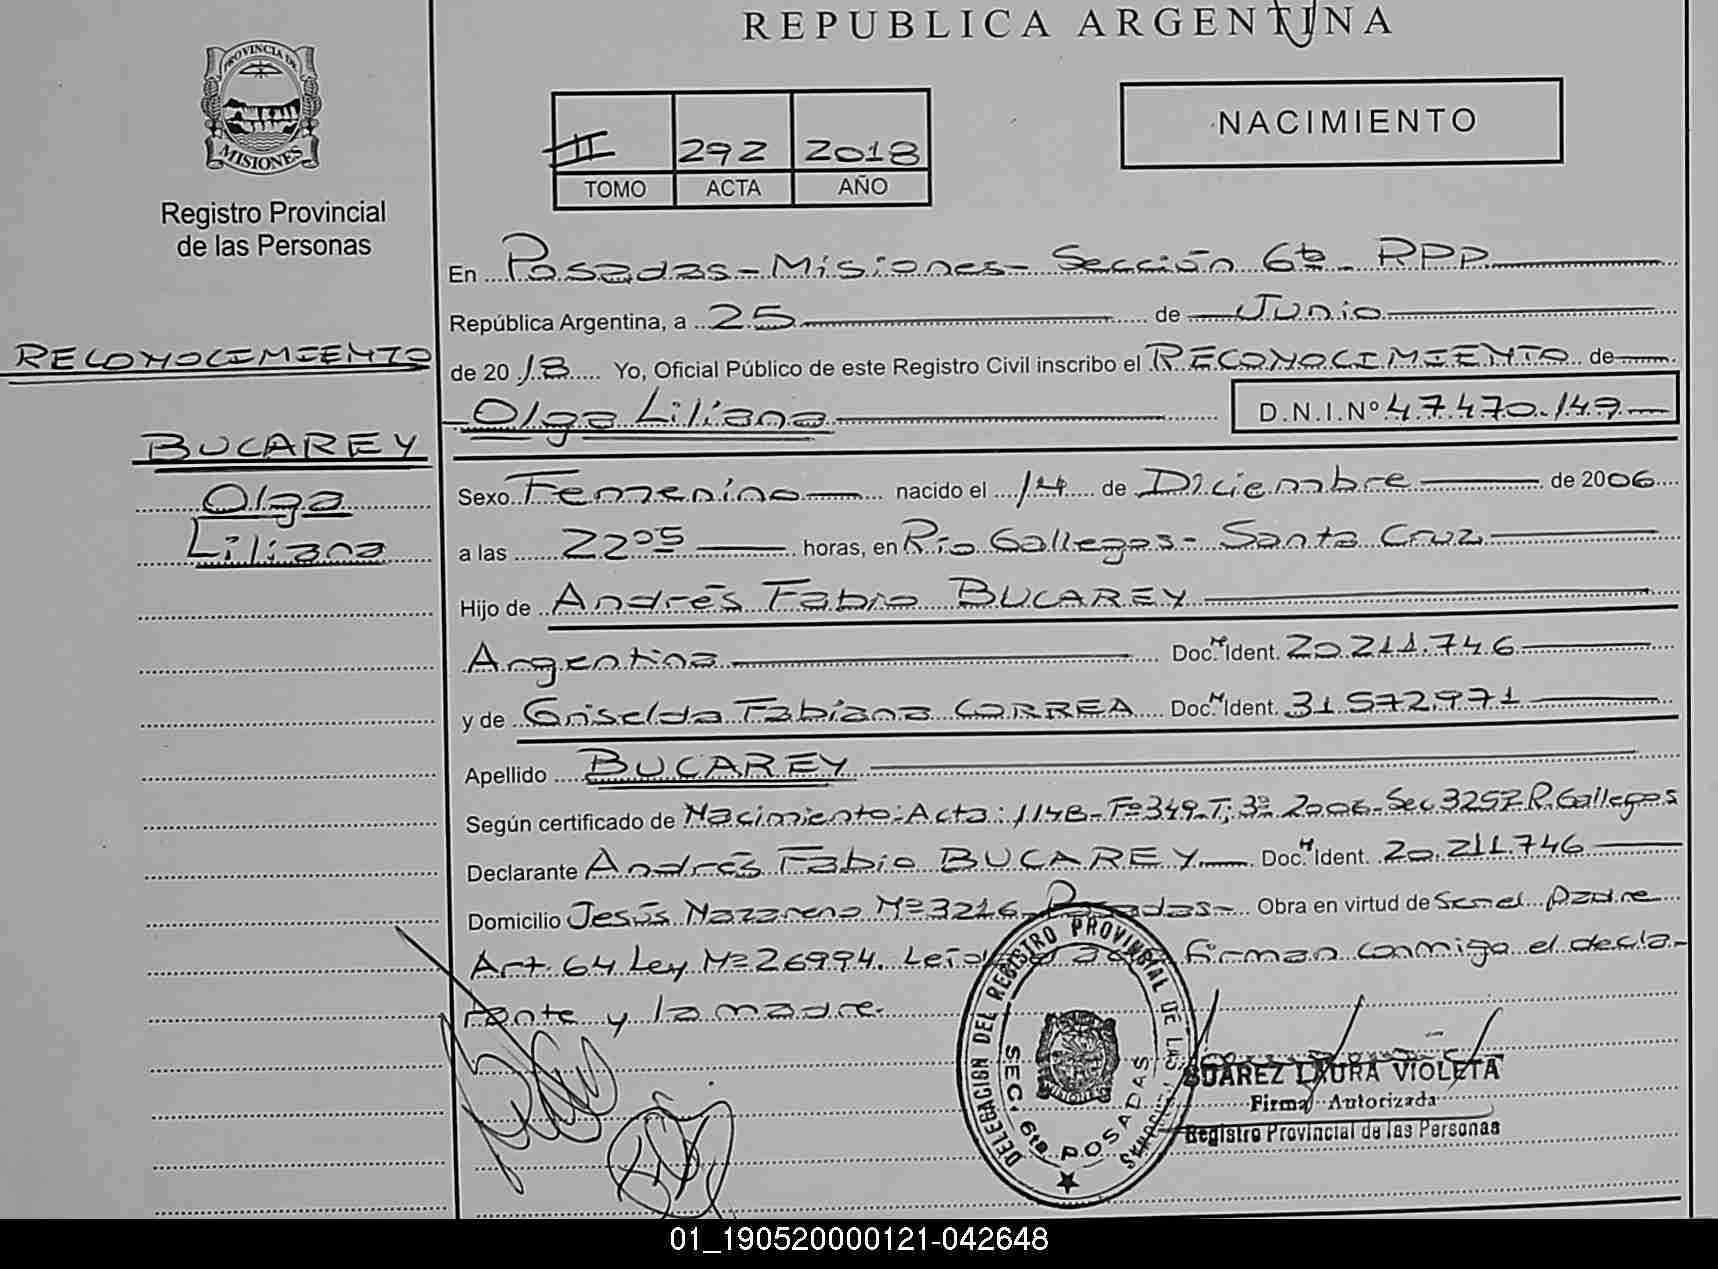 REPUBLICA ARGENTINA
PROVINCIA DE
MISIONES
Registro Provincial
de las Personas
II 292 2018
TOMO ACTA AÑO
NACIMIENTO
En Posadas - Misiones - Sección 6ta RPP
República Argentina, a 25 de Junio
de 2018 Yo, Oficial Público de este Registro Civil inscribo el RECONOCIMIENTO de
Olga Liliana D.N.I.Nº 47.470.149
RECONOCIMIENTO
BUCAREY
Olga
Liliana
Sexo Femenino nacido el 14 de Diciembre de 2006
a las 22 05 horas, en Río Gallegos - Santa Cruz
Hijo de Andrés Fabio BUCAREY
Argentina Doc. N Ident. 20.211.746
y de Griselda Fabiana CORREA Doc. N Ident. 31.572.971
Apellido BUCAREY
Según certificado de Nacimiento: Acta: 1148 - Fº 349 - T: 3º - 2006 - Sec 3257 R. Gallegos
Declarante Andrés Fabio BUCAREY Doc. N Ident. 20.211.746
Domicilio Jesús Nazareno Nº 3216 - Posadas - Obra en virtud de Ser el Padre
Art. 64 Ley Nº 26994. firman conmigo el decla-
rante y la madre.
DELEGACION DEL REGISTRO PROVINCIAL DE LAS
SEC. 6ta. POSADAS
SUAREZ LAURA VIOLETA
Firma Autorizada
Registro Provincial de las Personas
01_190520000121-042648